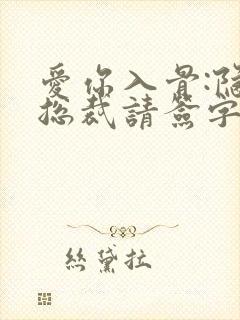 愛你入骨:
總裁請簽字
絲黛拉